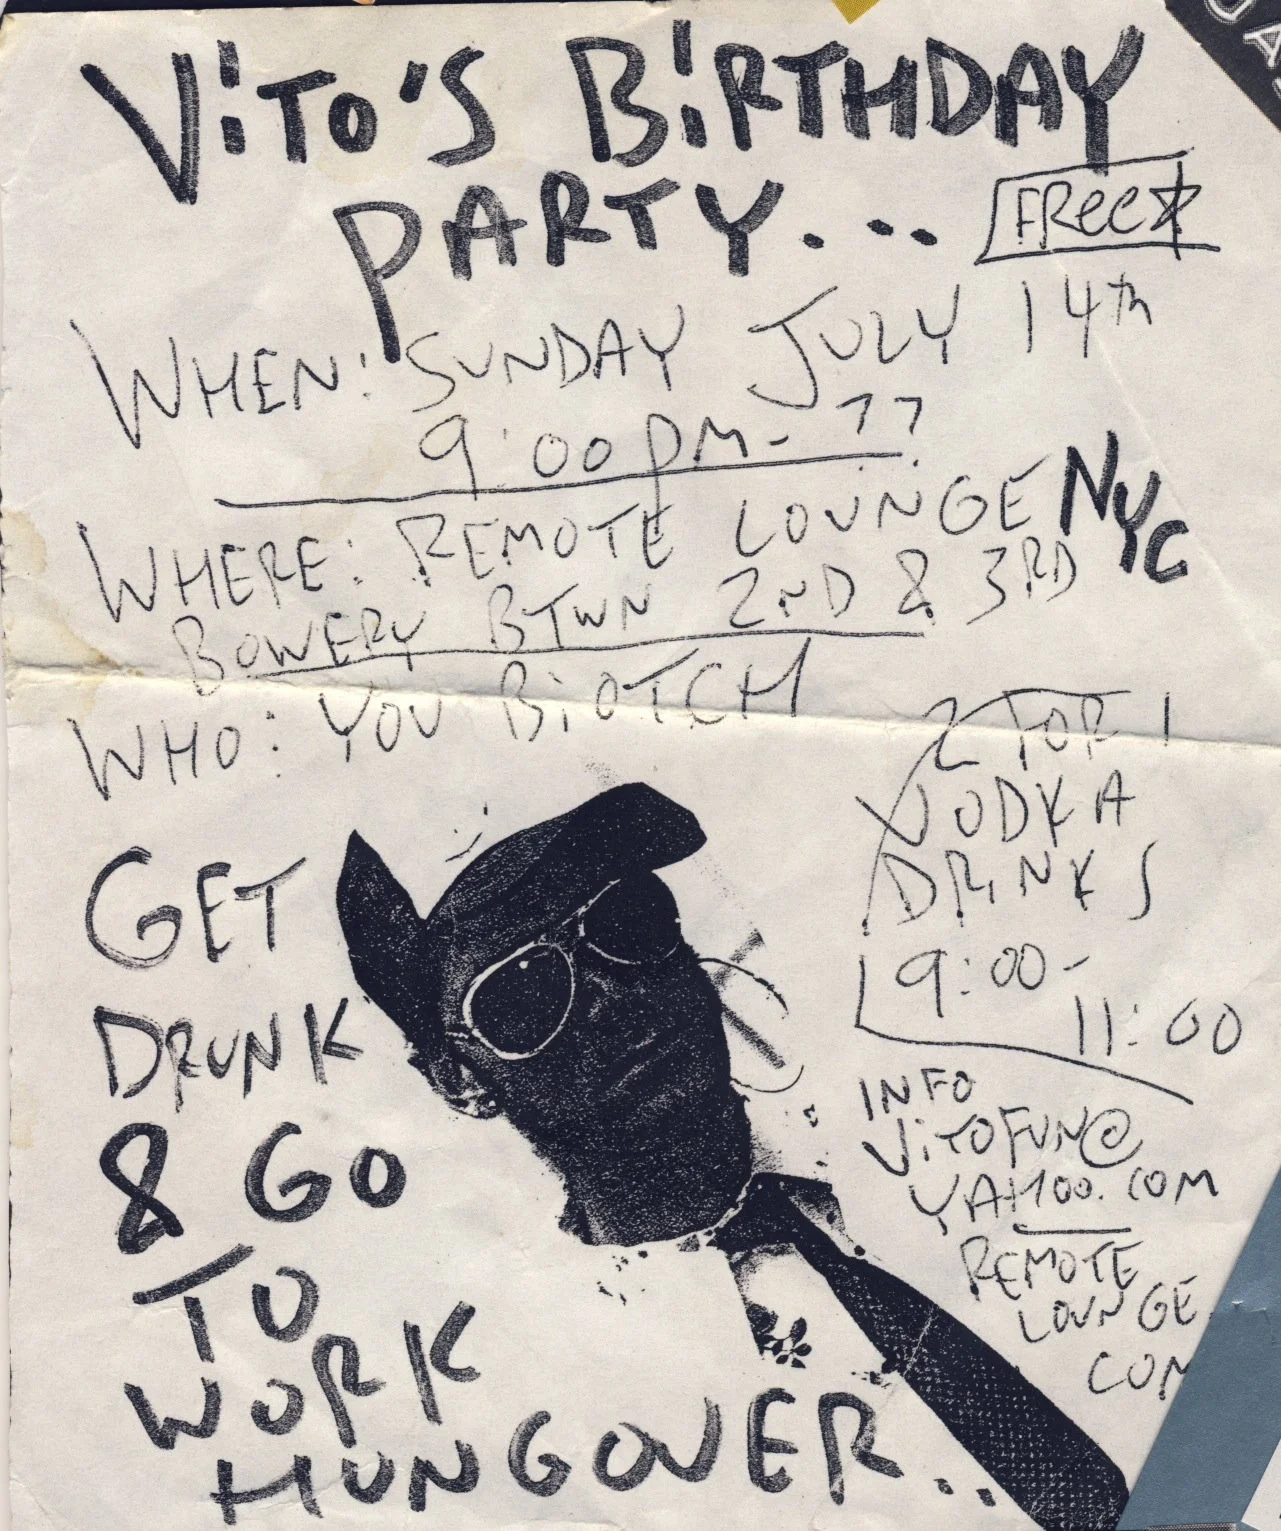 ViTO'S BiRTHDAY
PARTY...
FREE*
WHEN: SUNDAY JULY 14th
9:00 PM - ??
WHERE: REMOTE LOUNGE NYC
BOWERY BTWN 2ND & 3RD
WHO: YOU BiOTCH
2 FOR 1
VODKA
DRINKS
9:00-
11:00
GET
DRUNK
& GO
TO
WORK
HUNGOVER...
INFO
ViTOFUN@
YAHOO.COM
REMOTE
LOUNGE.
COM